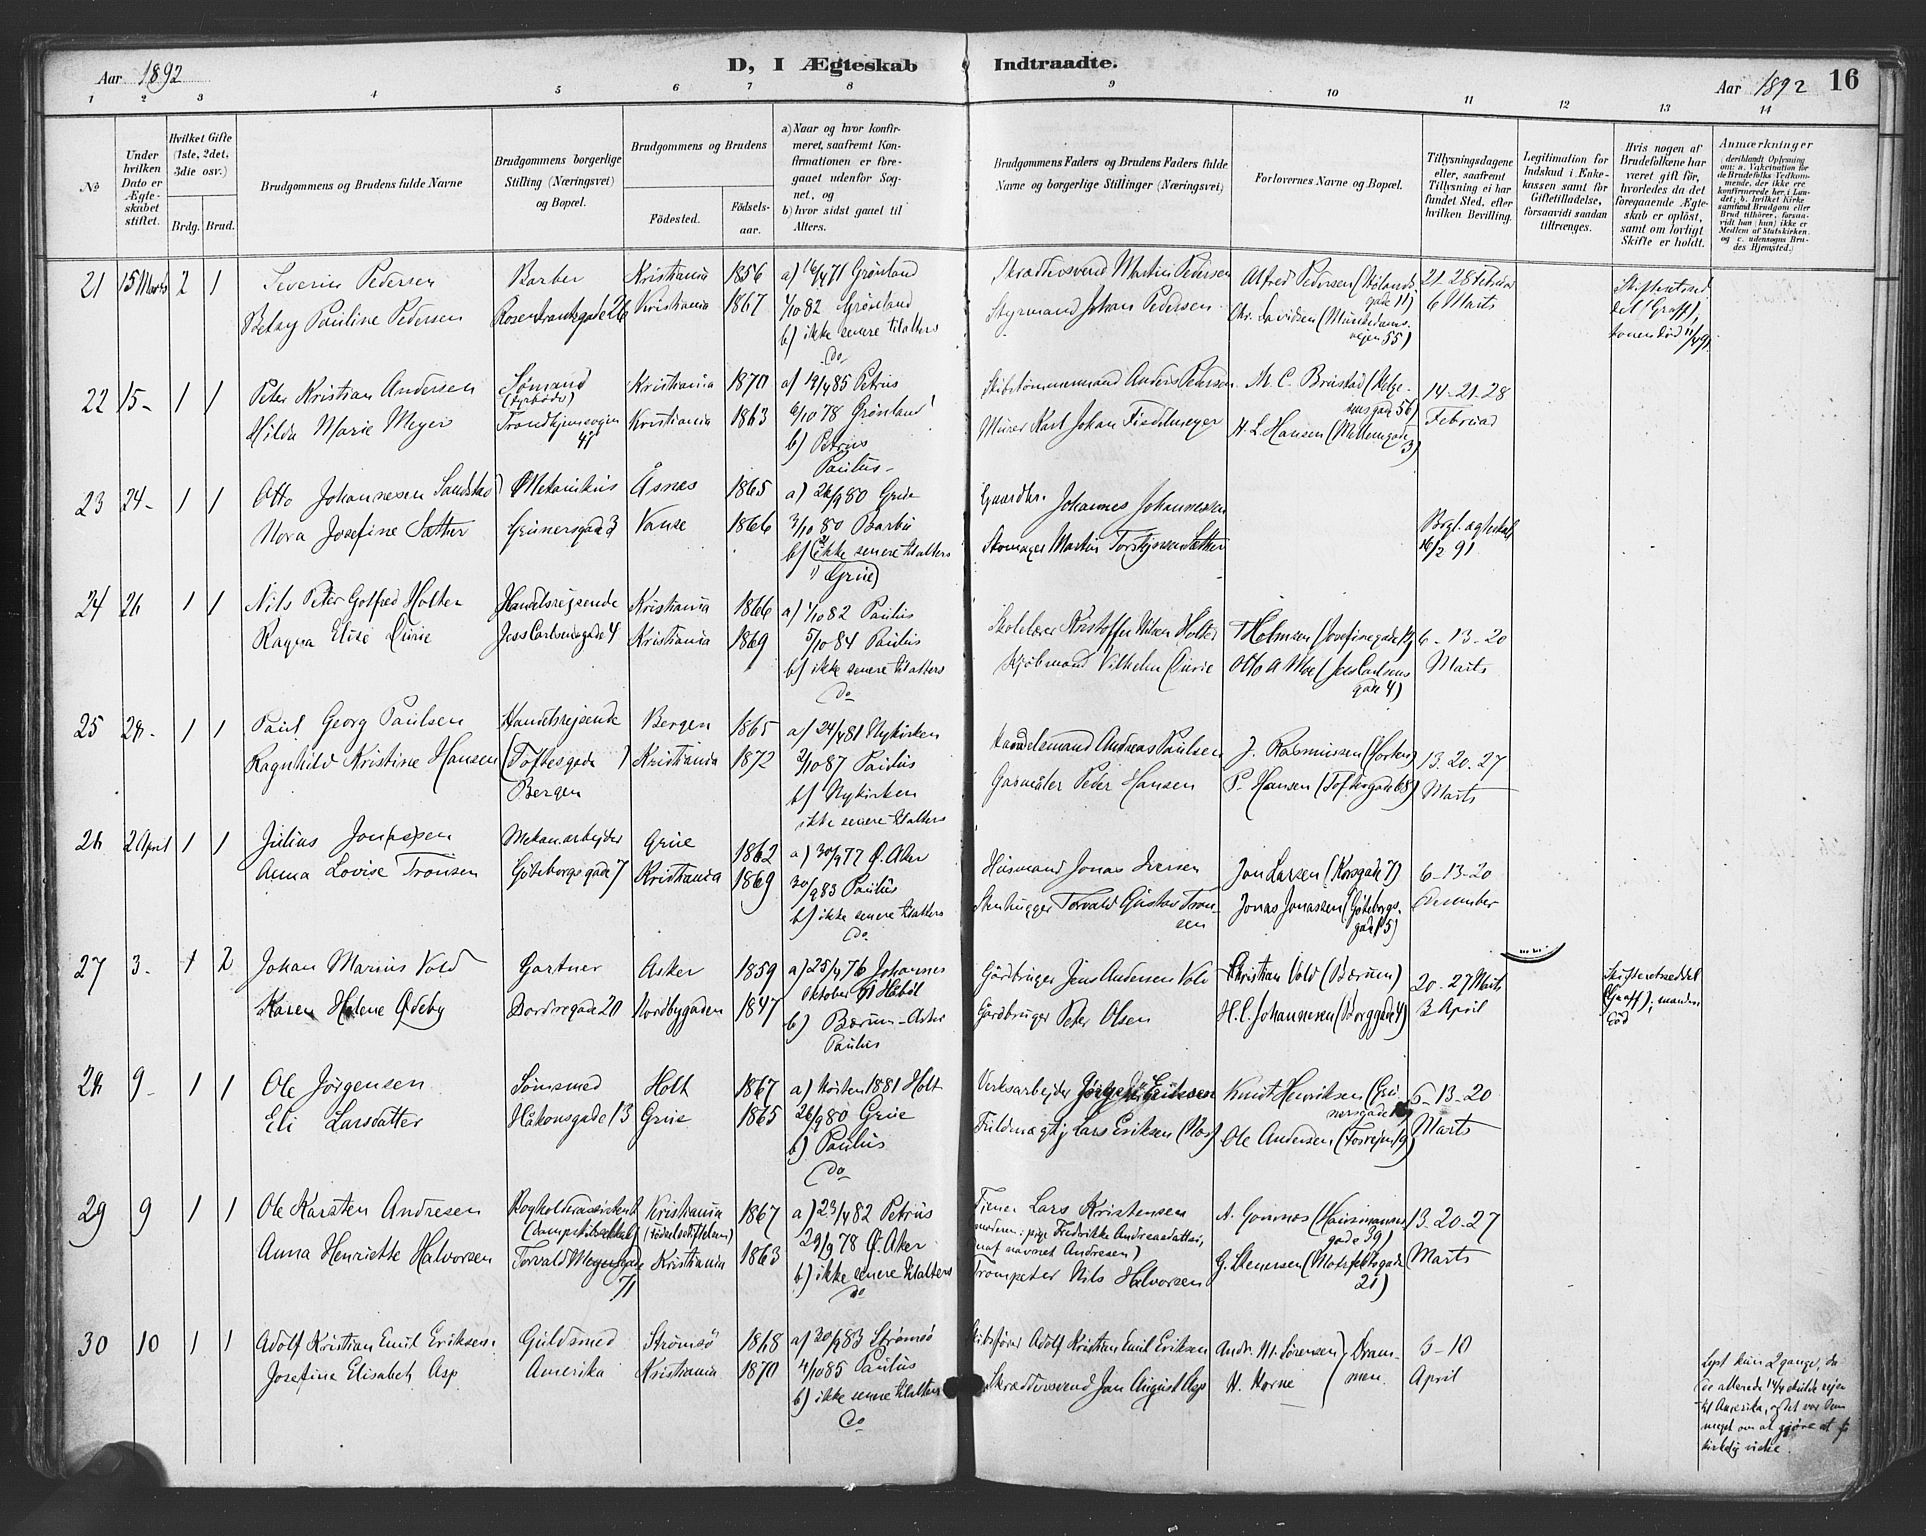 Aar 1892
D, I Ægteskab Indtraadte.
Aar 1892 16
1 2 3 4 5 6 7 8 9 10 11 12 13 14
No
Under hvilken Dato er Ægteskabet stiftet.
Hvilket Gifte (1ste, 2det, 3die osv.)
Brdg. Brud.
Brudgommens og Brudens fulde Navne
Brudgommens borgerlige Stilling (Næringsvei) og Bopæl.
Brudgommens og Brudens
Födested. Födselsaar.
a) Naar og hvor konfirmeret, saafremt Konfirmationen er foregaaet udenfor Sognet, og
b) hvor sidst gaaet til Alters.
Brudgommens Faders og Brudens Faders fulde Navne og borgerlige Stillinger (Næringsvei)
Forlovernes Navne og Bopæl.
Tillysningsdagene eller, saafremt Tillysning ei har fundet Sted, efter hvilken Bevilling.
Legitimation for Indskud i Enkekassen samt for Giftetilladelse, forsaavidt saadan tiltrænges.
Hvis nogen af Brudefolkene har været gift för, hvorledes da det foregaaende Ægteskab er oplöst, samt om lovligt Skifte er holdt.
Anmærkninger
(deriblandt Oplysning om: a. Vakcination for de Brudefolks Vedkommende, der ikke ere konfirmerede her i Landet; b. hvilket Kirkesamfund Brudgom eller Brud tilhörer, forsaavidt han (hun) ikke er Medlem af Statskirken, og c. udensogns Brudes Hjemsted.)
21 15 Marts 2 1 Severin Pedersen Barber Kristiania 1856 a) 16/4 71 Grønland Skræddersvend Martin Pedersen Alfred Pedersen 21. 28 Februar Skifteretsseddel (Graff),
Betsy Pauline Pedersen Rosenkrantzgade 26 Kristiania 1867 1/10 82 Grønland Styrmand Johan Pedersen gade 11) 6 Marts
b) ikke senere tilalters Chr. Davidsen (Munkedamsvejen 55) konen død
do
22 15- 1 1 Peter Kristian Andersen Sømand Kristiania 1870 a) 12/4 85 Petrus Skibstømmermand Anders Pedersen M. C. Brustad 14-21-28
(fyrbøder) gade 56)
Hilda Marie Meyer Trondhjemsvejen 41 Kristiania 1863 6/10 78 Grønland Murer Karl Johan Fiedelmeyer H. L. Hansen 3) Februar
b) Petrus
Paulus-
23 24- 1 1 Otto Johannesen Sandstad Mekanikus Åsnes 1865 a) 26/9 80 Grue Gaardbr. Johannes Johannessen
Nora Josefine Sæther Grünersgade 3 Vanse 1866 3/10 80 Barbu Skomager Martin Torstejnsen Sæther Brgl. ægteskab 16/2 91
b) (ikke senere tilalters
Grue)
24 26 1 1 Nils Peter Gotfred Holter Handelsrejsende Kristiania 1866 a) 1/10 82 Paulus Skolelærer Kristoffer Nilsen Holter T Holmsen (Josefinegade 6-13-20
Ragna Elise Durie Jess Carlsensgade 4 Kristiania 1869 5/10 84 Paulus Kjøbmand Vilhelm Durie Otto A Moe (Jess Carlsens gade 4) Marts
b) ikke senere tilalters
do
25 28- 1 1 Paul Georg Paulsen Handelsrejsende Bergen 1865 a) 24/4 81 Nykirken Handelsmand Andreas Paulsen J. Rasmussen (Horten) 13. 20. 27
Ragnhild Kristine Hansen (Toftesgade ) Kristiania 1872 2/10 87 Paulus Gasmåler Peder Hansen P. Hansen (Toftesgade 68) Marts
Bergen b) Nykirken
ikke senere tilalters
26 2 April 1 1 Julius Jonassen Mekan.arbejder Grue 1862 a) 30/9 77 Ø. Aker Husmand Jonas Iversen Jon Larsen (Korsgade 7) 6-13-20
Anna Lovise Tronsen Göteborgsgade 7 Kristiania 1869 30/9 83 Paulus Stenhugger Torvald Gustav Tronsen Jonas Jonassen (Göteborgsgade 5) December
b) ikke senere tilalters
do
27 3- 1 2 Johan Marius Vold Gartner Asker 1859 a) 25/4 76 Johannes Gårdbruger Jens Andersen Vold Christian Vold (Bærum) 20-27 Marts Skifteretsseddel
Karen Helene Ødeby Nordregade 20 Nordbygaden 1847 Oktober 61 Håböl Gårdbruger Peter Olsen H. C. Johannesen (Borggade 4) 3 April (Graff), manden död
b) Bærum-Asker
Paulus
28 9- 1 1 Ole Jörgensen Sömsmed Holt 1867 a) Hösten 1881 Holt Verksarbejder Knut Henriksen (Grünersgade 6-13-20
Eli Larsdatter Håkonsgade 13 Grue 1865 26/9 80 Grue Fuldmægtig Lars Eriksen (Mos) Ole Andersen Marts
b) Paulus
do
29 9 1 1 Ole Karsten Andresen Bogholderassistent Kristiania 1867 a) 23/4 82 Petrus Tjener Lars Kristensen A. Gomnæs (Hausmanns gade 39) 13-20-27
(fødselsstiftelsen) moderen: pige Fredrikke Andreasdatter,
navnet Andresen)
Anna Henriette Halvorsen Torvald Meyersgade 71 Kristiania 1863 29/9 78 Ø. Aker Trompeter Nils Halvorsen G. Stenersen (Motzfeldtsgade 21) Marts
b) ikke senere tilalters
do
30 10 1 1 Adolf Kristian Emil Eriksen Guldsmed Strömsö 1868 a) 30/9 83 Strömsö Skibsfører Adolf Kristian Emil Eriksen Andr. M. Sörensen ) Drammen 3-10
Josefine Elisabeth Asp Amerika Kristiania 1870 4/10 85 Paulus Skræddersvend Jon August Asp H. Horne April
b) ikke senere tilalters
do
Lyst kun 2 gange, da
de allerede 14/4 skulde rejse
til Amerika, og det var dem
meget om at gjøre at få
kirkelig vielse.